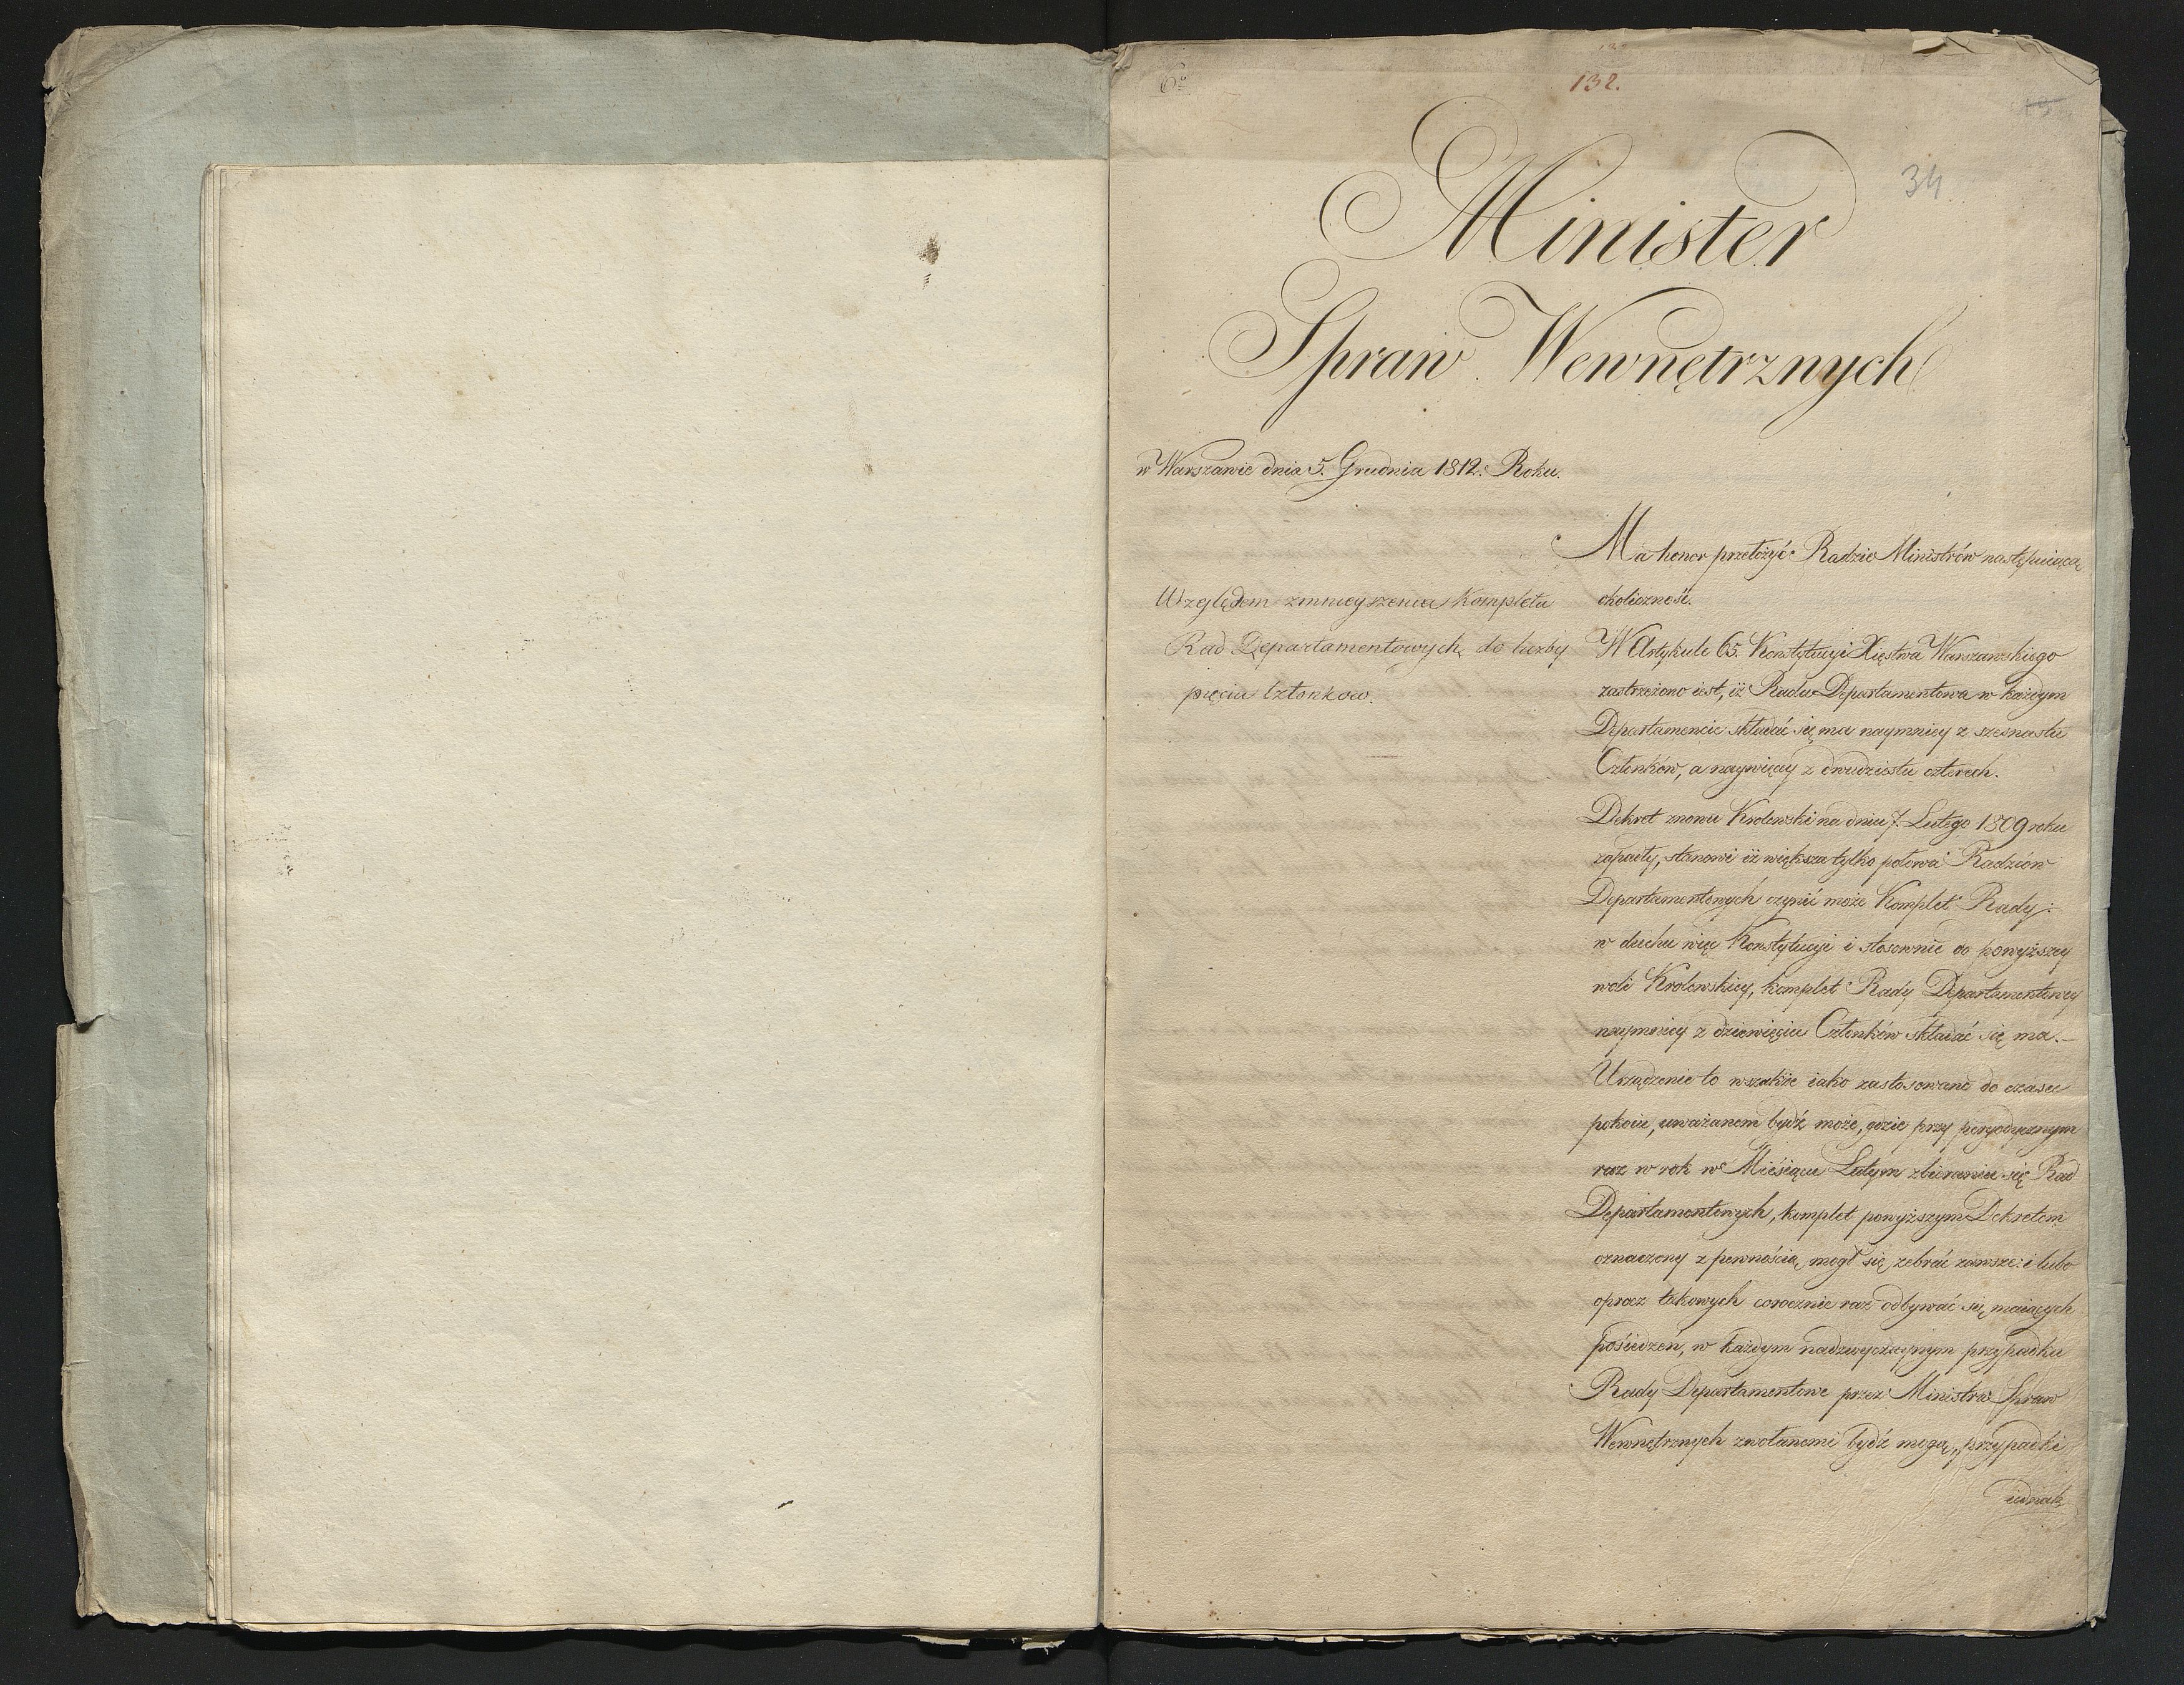 6º
132.
34
Minister
Spraw Wewnętrznych
w Warszawie dnia 5. Grudnia 1812. Roku.
Względem zmnieyszenia Kompletu
Rad Departamentowych do liczby
pięciu Członkow.
Ma honor przełożyć Radzie Ministrów następuiącą
okoliczność.
W Artykule 65. Konstytucyi Xięstwa Warszawskiego
zastrzeżono iest, iż Rada Departamentowa w każdym
Departamencie składać się ma naymniey z szesnastu
Członków, a naywięcey z dwudziestu czterech.
Dekret znowu Krolewski na dniu 7. Lutego 1809 roku
zapadły, stanowi iż większa tylko połowa Radzców
Departamentowych czynić może Komplet Rady:
w duchu więc Konstytucyi i stosownie do powyższey
woli Krolewskiey, komplet Rady Departamentowey
naymniey z dziewięciu Członków składać się ma.—
Urządzenie to wszakże iako zastosowane do czasu
pokoiu, uważanem bydź może, gdzie przy peryodycznym
raz w rok w Miesiącu Lutym zbieraniu się Rad
Departamentowych, komplet powyższym Dekretem
oznaczony z pewnością mogł się zebrać zawsze: i lubo
oprocz takowych corocznie raz odbywać się maiących
posiedzeń, w każdym nadzwyczaynym przypadku
Rady Departamentowe przez Ministra Spraw
Wewnętrznych zwołanemi bydź mogą, przypadki
iednak